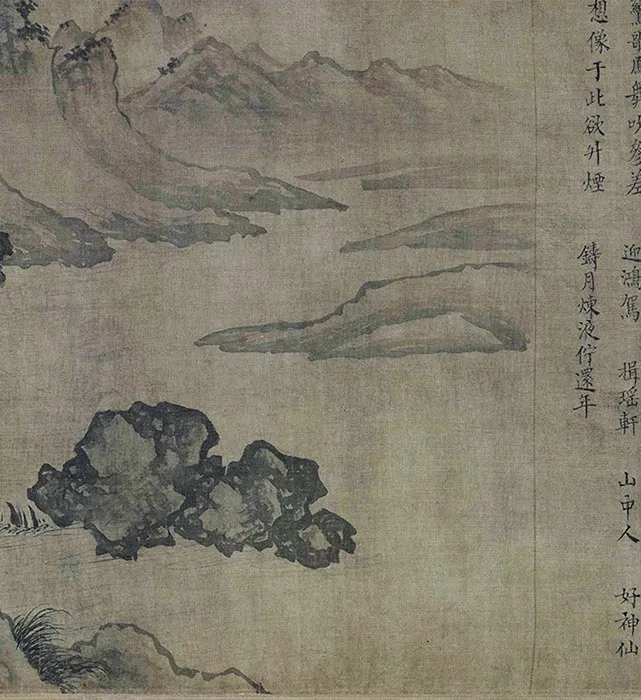 歌鳳舞吹參差　迎鴻駕　揖瑤軒　山中人　好神仙
想像于此欲升煙　鑄月煉液佇還年